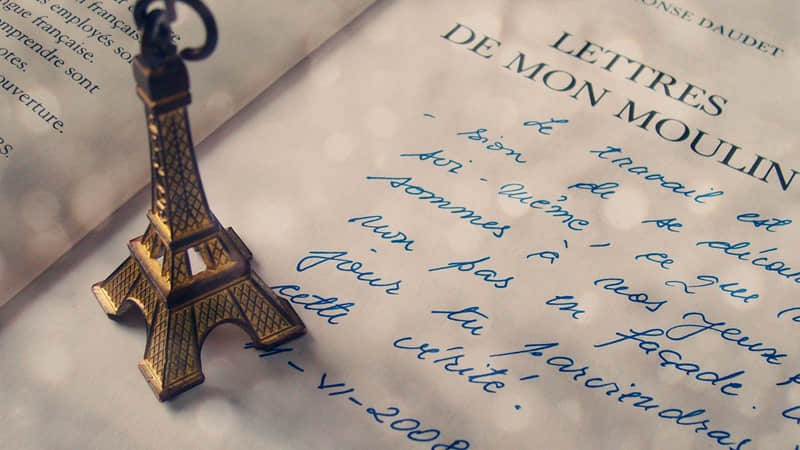 française
s employés so
gue française.
mprendre sont
otes.
ouverture.
ns.
ONSE DAUDET
LETTRES
DE MON MOULIN
Le travail est
- sion de se découv
soi-même, ce que n
sommes à nos yeux
non pas en façade.
jour tu parviendras
cette vérité.
11-VI-2008